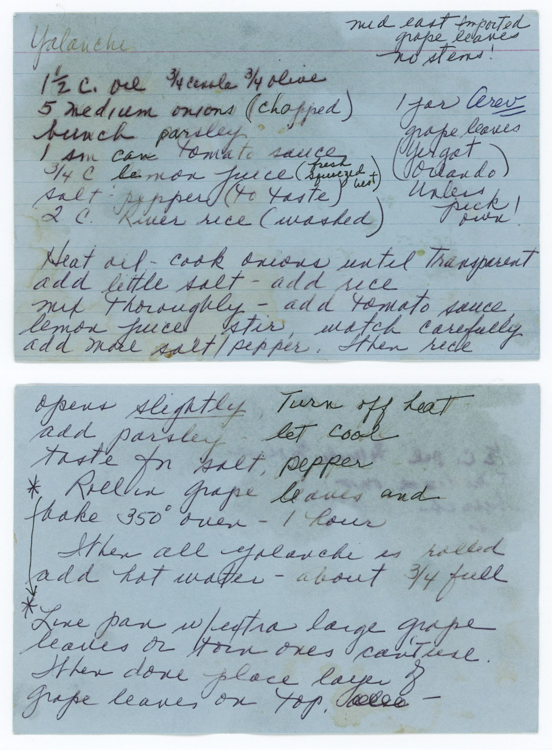 Yalanchi
mid east imported
grape leaves
no stems!
1 1/2 C. oil 3/4 wesole 3/4 olive
5 medium onions (chopped)
bunch parsley
1 sm can tomato sauce
3/4 C lemon juice (fresh squeezed best)
salt pepper (to taste)
2 C. River rice (washed)
1 jar Arev
grape leaves
(Yergat
Orlando)
Unless
pick
own!
Heat oil - cook onions until transparent
add little salt - add rice
mix thoroughly - add tomato sauce,
lemon juice stir, watch carefully
add more salt/pepper. When rice
opens slightly. Turn off heat
add parsley - let cool
taste for salt, pepper
* Roll in grape leaves and
bake 350° oven - 1 hour
When all yalanchi is rolled
add hot water - about 3/4 full
* Line pan w/extra large grape
leaves or torn ones can't use.
When done place layer of
grape leaves on top. -